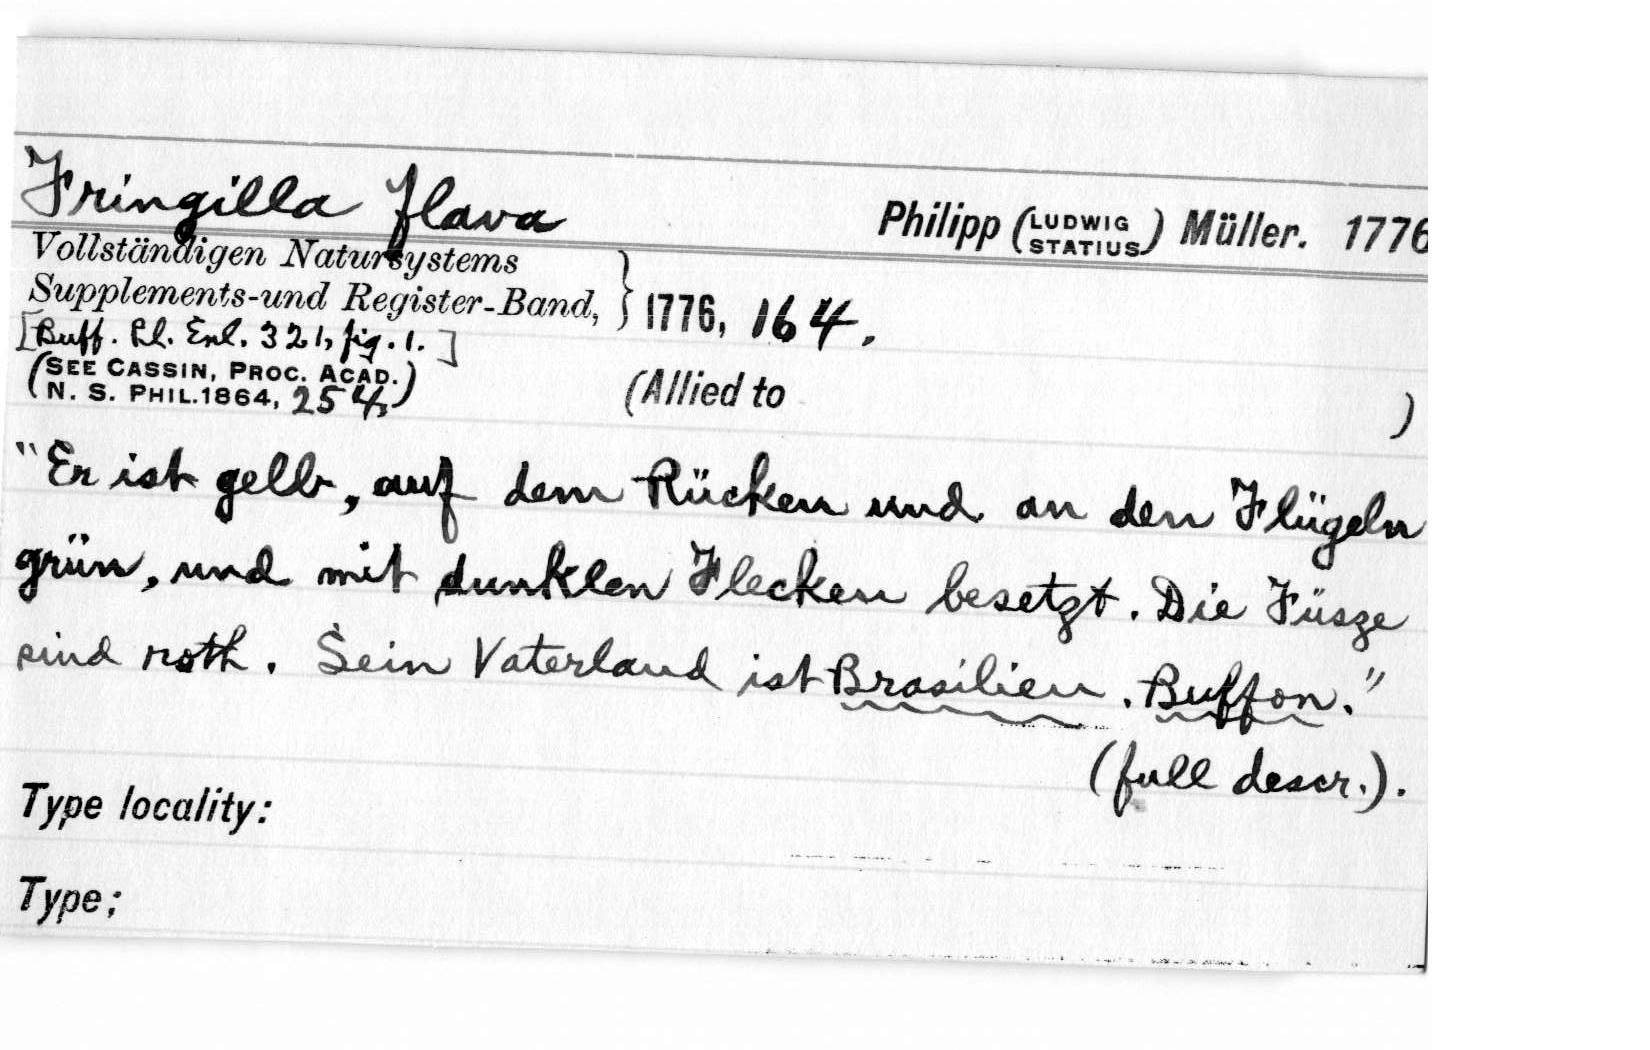 Fringilla flava
Philipp (LUDWIG STATIUS) Müller. 1776
Vollständigen Natursystems
Supplements-und Register-Band, } 1776, 164.
[Buff. Pl. Enl. 321, fig. 1.]
(SEE CASSIN, PROC. ACAD.
N. S. PHIL. 1864, 254.)
(Allied to )
"Er ist gelb, auf dem Rücken und an den Flügeln
grün, und mit dunklen Flecken besetzt. Die Füsze
sind roth. Sein Vaterland ist Brasilien. Buffon."
(full descr.).
Type locality:
Type;